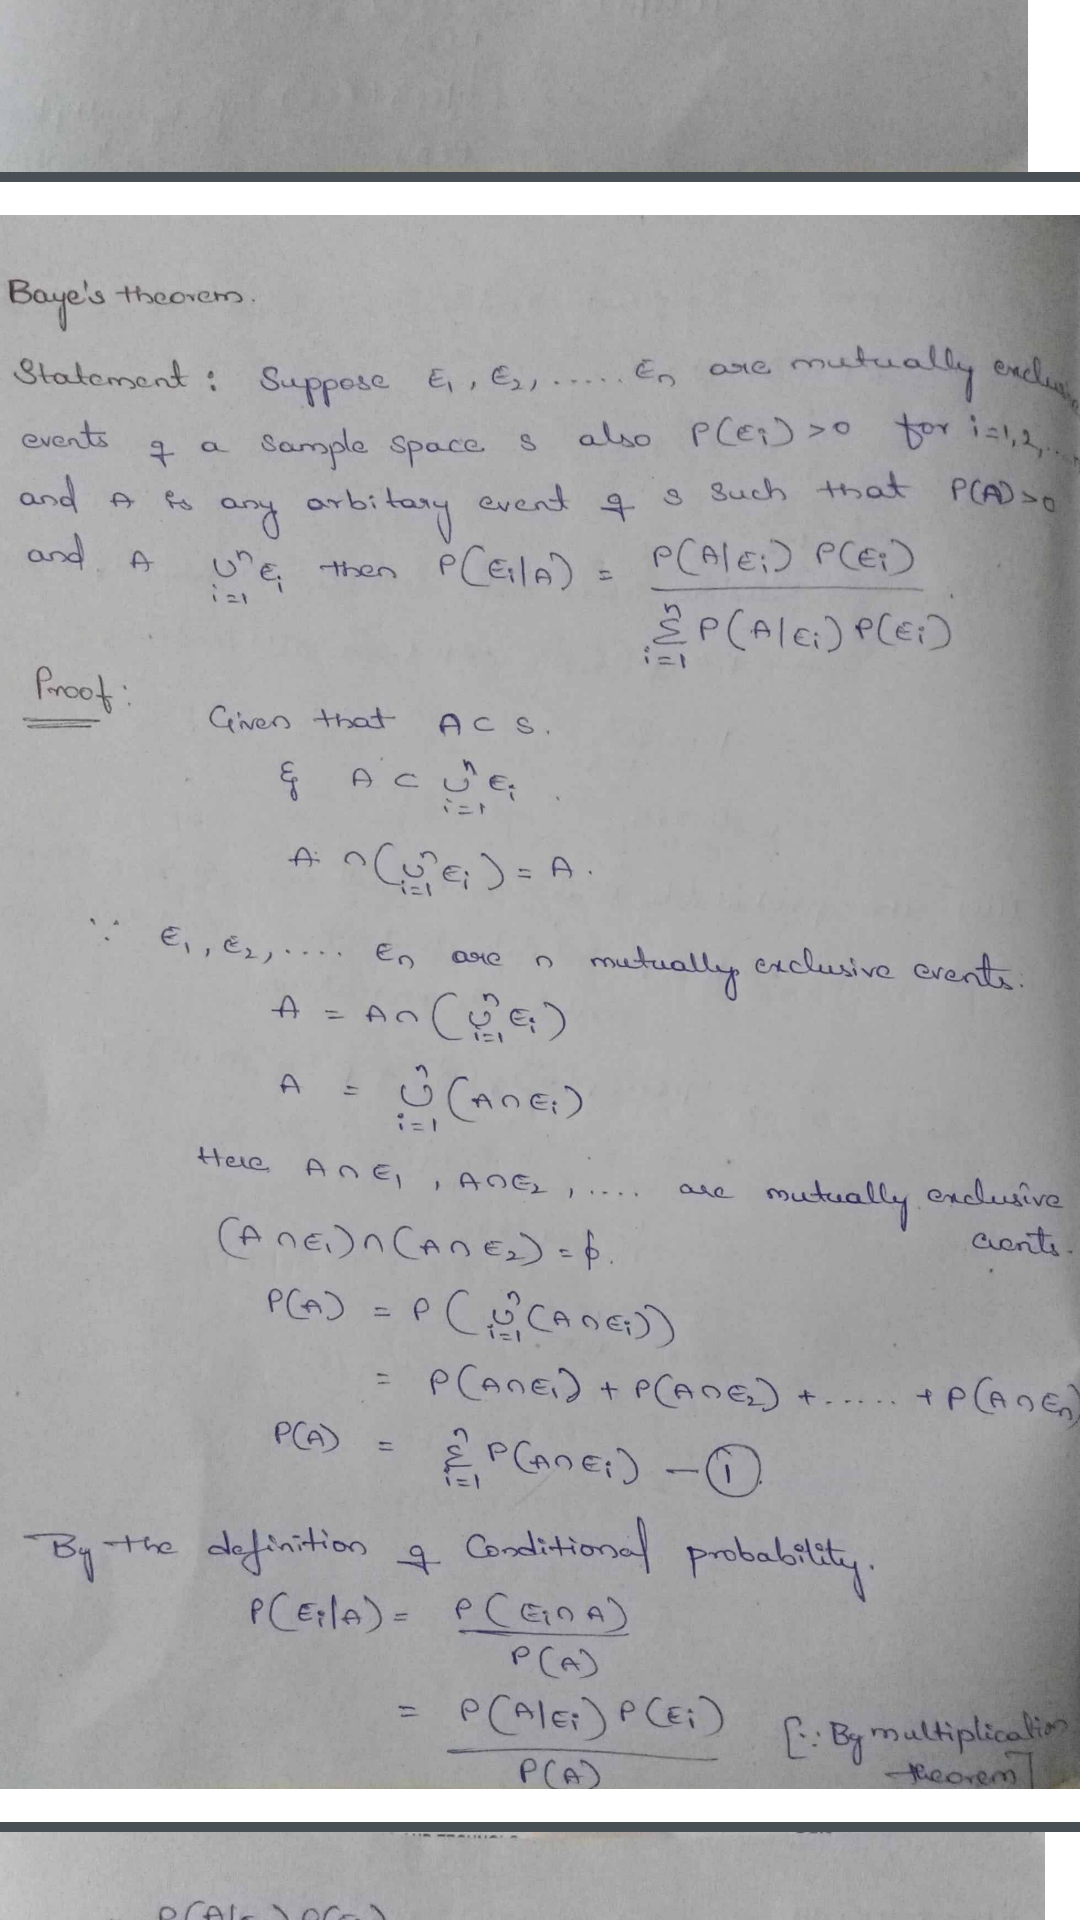 Baye's theorem.
Statement : Suppose E₁, E₂, ..... Eₙ are mutually exclusive
events of a sample space s also P(Eᵢ) >0 for i=1,2,....
and A is any arbitary event of s such that P(A)>0
and A ∪ⁿᵢ₌₁ Eᵢ then P(Eᵢ|A) = P(A|Eᵢ) P(Eᵢ) / Σⁿᵢ₌₁ P(A|Eᵢ) P(Eᵢ)
Proof :
Given that A ⊂ S.
& A ⊂ ∪ⁿᵢ₌₁ Eᵢ .
A ∩ (∪ⁿᵢ₌₁ Eᵢ) = A .
∵ E₁, E₂, .... Eₙ are n mutually exclusive events.
A = A∩(∪ⁿᵢ₌₁ Eᵢ)
A = ∪ⁿᵢ₌₁ (A∩Eᵢ)
Here A∩E₁ , A∩E₂ , .... are mutually exclusive
events.
(A∩E₁)∩(A∩E₂) = ϕ.
P(A) = P(∪ⁿᵢ₌₁ (A∩Eᵢ))
= P(A∩E₁) + P(A∩E₂) + ...... + P(A∩Eₙ)
P(A) = Σⁿᵢ₌₁ P(A∩Eᵢ) — ①.
By the definition of Conditional probability.
P(Eᵢ|A) = P(Eᵢ∩A) / P(A)
= P(A|Eᵢ) P(Eᵢ) / P(A) [∵ By multiplication
theorem]